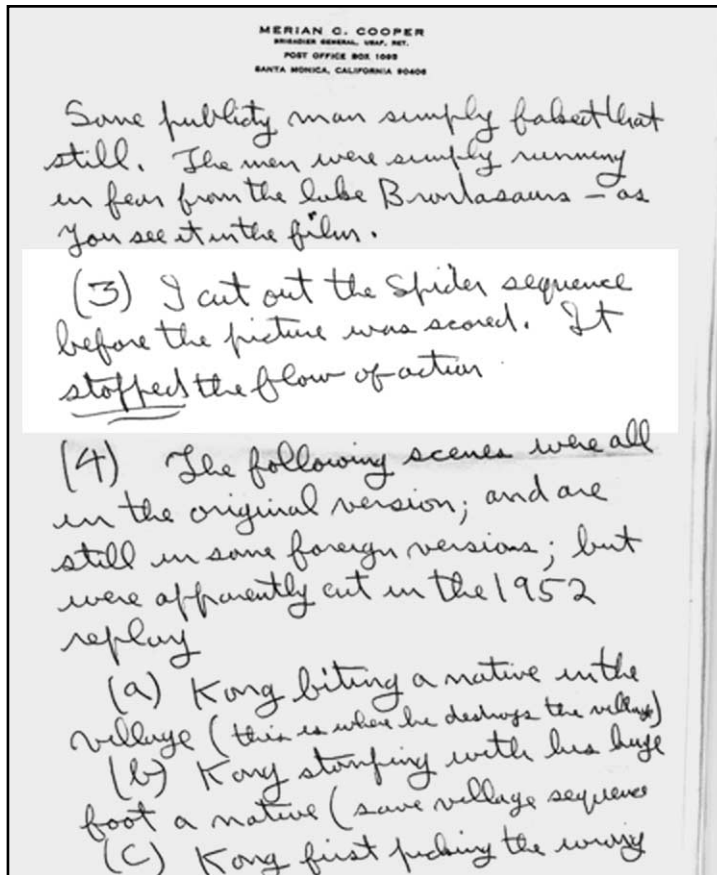 MERIAN C. COOPER
BRIGADIER GENERAL, USAF, RET.
POST OFFICE BOX 1093
SANTA MONICA, CALIFORNIA 90406
Some publicity man simply faked that
still. The men were simply running
in fear from the lake Brontasaurs – as
you see it in the film.
(3) I cut out the Spider sequence
before the picture was scored. It
stopped the flow of action.
(4) The following scenes were all
in the original version; and are
still in some foreign versions; but
were apparently cut in the 1952
replay
(a) Kong biting a native in the
village (this is where he destroys the village)
(b) Kong stomping with his huge
foot a native (same village sequence
(C) Kong first picking the wrong